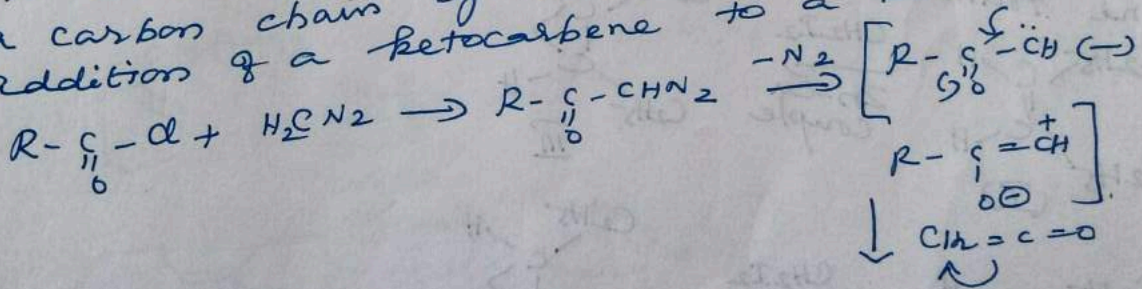 carbon chain
addition of a ketocarbene to a
R - C - Cl + H2CN2 → R - C - CHN2 -N2 → [ R - C - C̈H ↔
|| O || O || O
R - C = C⁺H ]
| O⊖
↓ CH2 = C = O